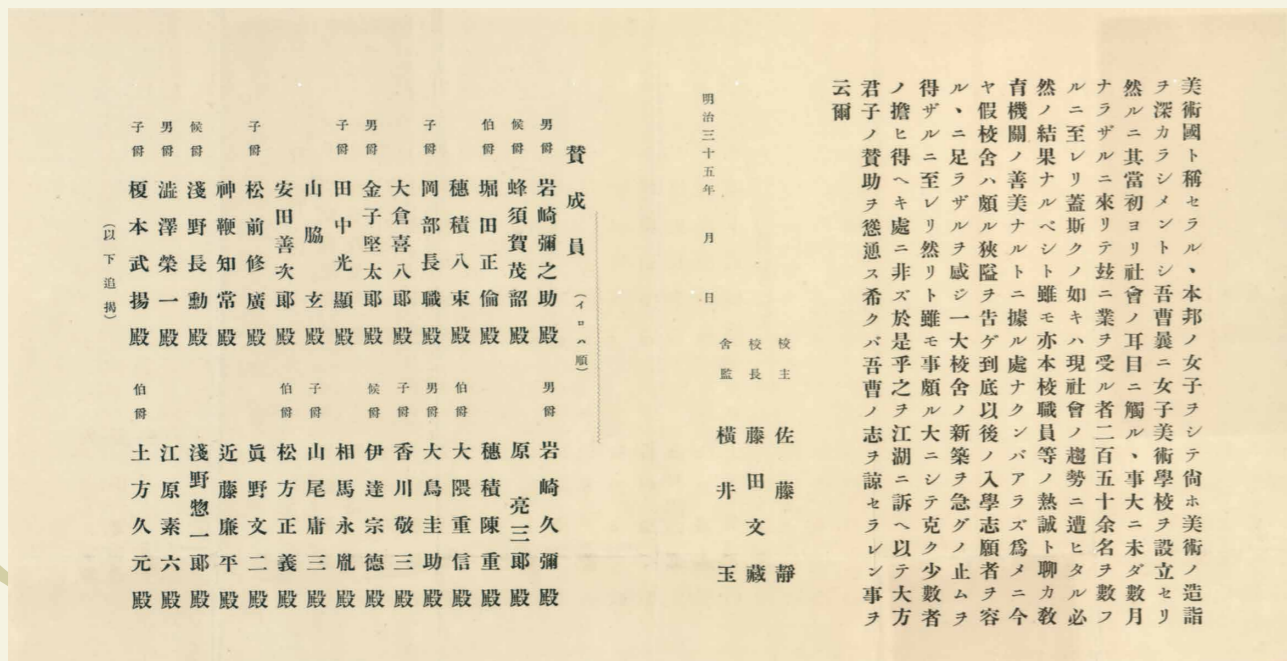 美術國ト稱セラル、本邦ノ女子ヲシテ尙ホ美術ノ造詣
ヲ深カラシメントシ吾曹曩ニ女子美術學校ヲ設立セリ
然ルニ其當初ヨリ社會ノ耳目ニ觸ル、事大ニ未ダ數月
ナラザルニ來リテ玆ニ業ヲ受ル者二百五十余名ヲ數フ
ルニ至レリ蓋斯クノ如キハ現社會ノ趨勢ニ遭ヒタル必
然ノ結果ナルベシト雖モ亦本校職員等ノ熱誠ト聊カ敎
育機關ノ善美ナルトニ據ル處ナクンバアラズ爲メニ今
ヤ假校舍ハ頗ル狹隘ヲ吿ゲ到底以後ノ入學志願者ヲ容
ル、ニ足ラザルヲ感ジ一大校舍ノ新築ヲ急グノ止ムヲ
得ザルニ至レリ然リト雖モ事頗ル大ニシテ克ク少數者
ノ擔ヒ得ヘキ處ニ非ズ於是乎之ヲ江湖ニ訴ヘ以テ大方
君子ノ賛助ヲ慫慂ス希クバ吾曹ノ志ヲ諒セラレン事ヲ
云爾
明治三十五年 月 日
校主 佐藤靜
校長 藤田文藏
舍監 橫井玉
賛成員 (イロハ順)
男爵 岩崎彌之助殿
侯爵 蜂須賀茂韶殿
伯爵 堀田正倫殿
穗積八束殿
子爵 岡部長職殿
大倉喜八郞殿
男爵 金子堅太郞殿
子爵 田中光顯殿
山脇玄殿
安田善次郞殿
子爵 松前修廣殿
神鞭知常殿
侯爵 淺野長勳殿
男爵 澁澤榮一殿
子爵 榎本武揚殿
男爵 岩崎久彌殿
原亮三郞殿
穗積陳重殿
伯爵 大隈重信殿
男爵 大鳥圭助殿
子爵 香川敬三殿
侯爵 伊達宗德殿
相馬永胤殿
子爵 山尾庸三殿
伯爵 松方正義殿
眞野文二殿
近藤廉平殿
淺野惣一郞殿
江原素六殿
伯爵 土方久元殿
(以下追揭)